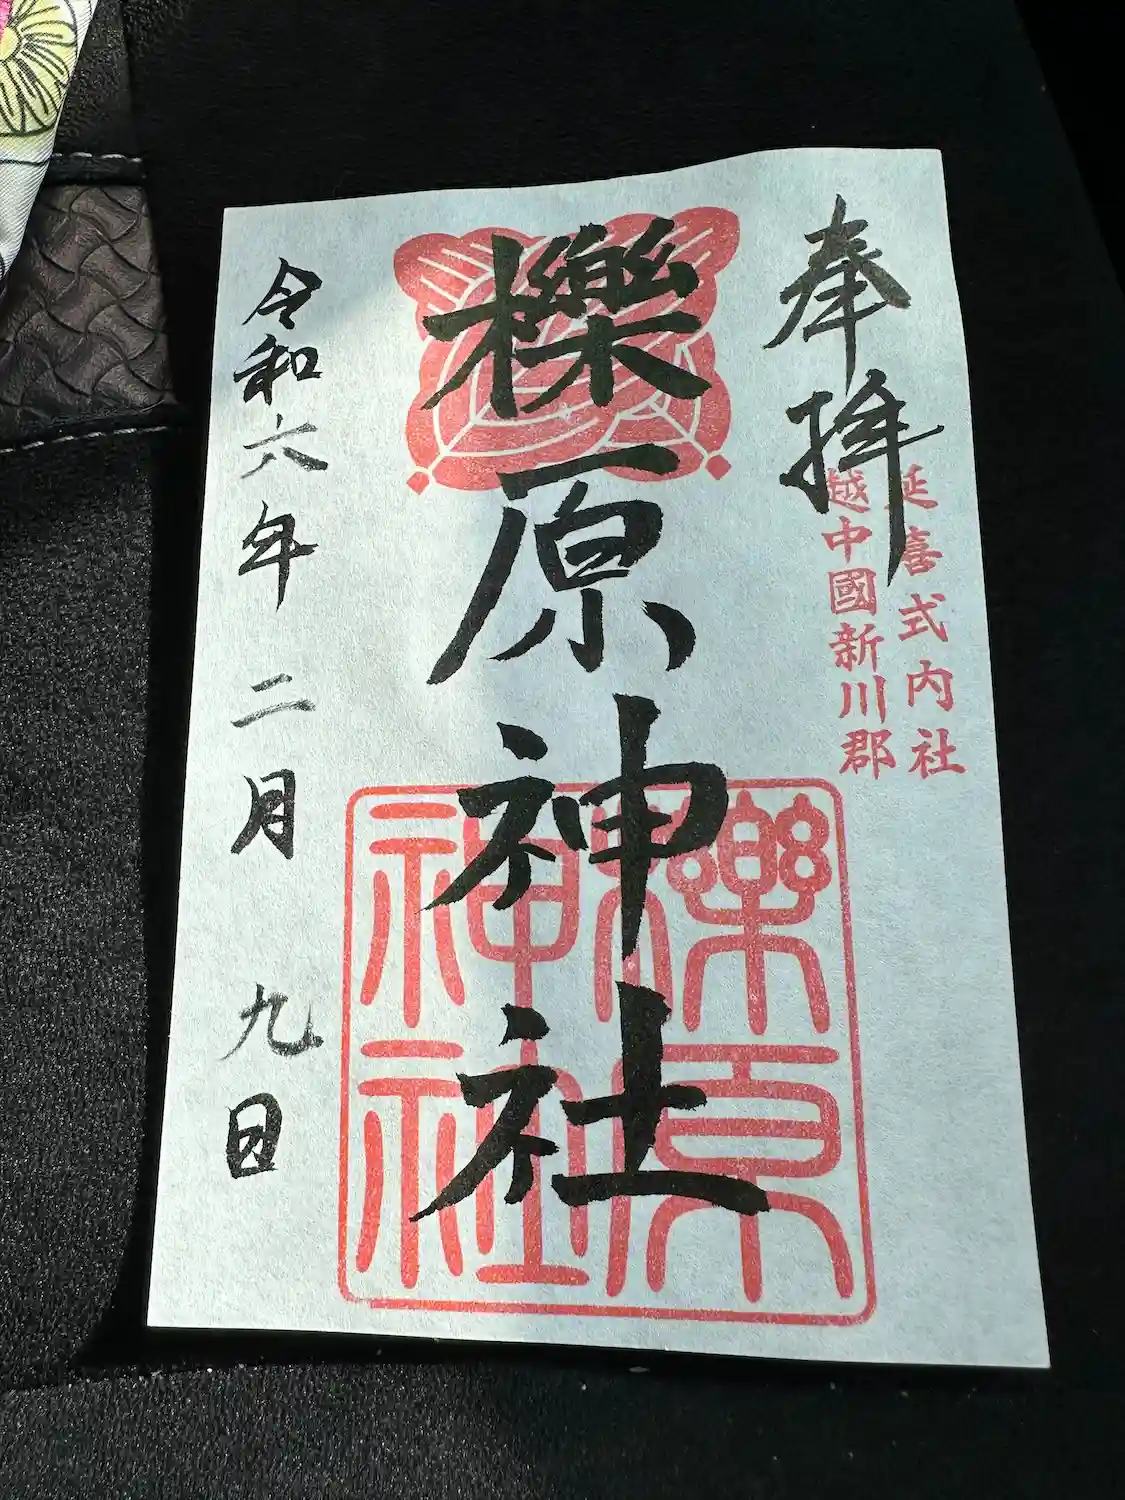 奉拜
延喜式内社
越中國新川郡
櫟原神社
櫟原
神社
令和六年二月九日